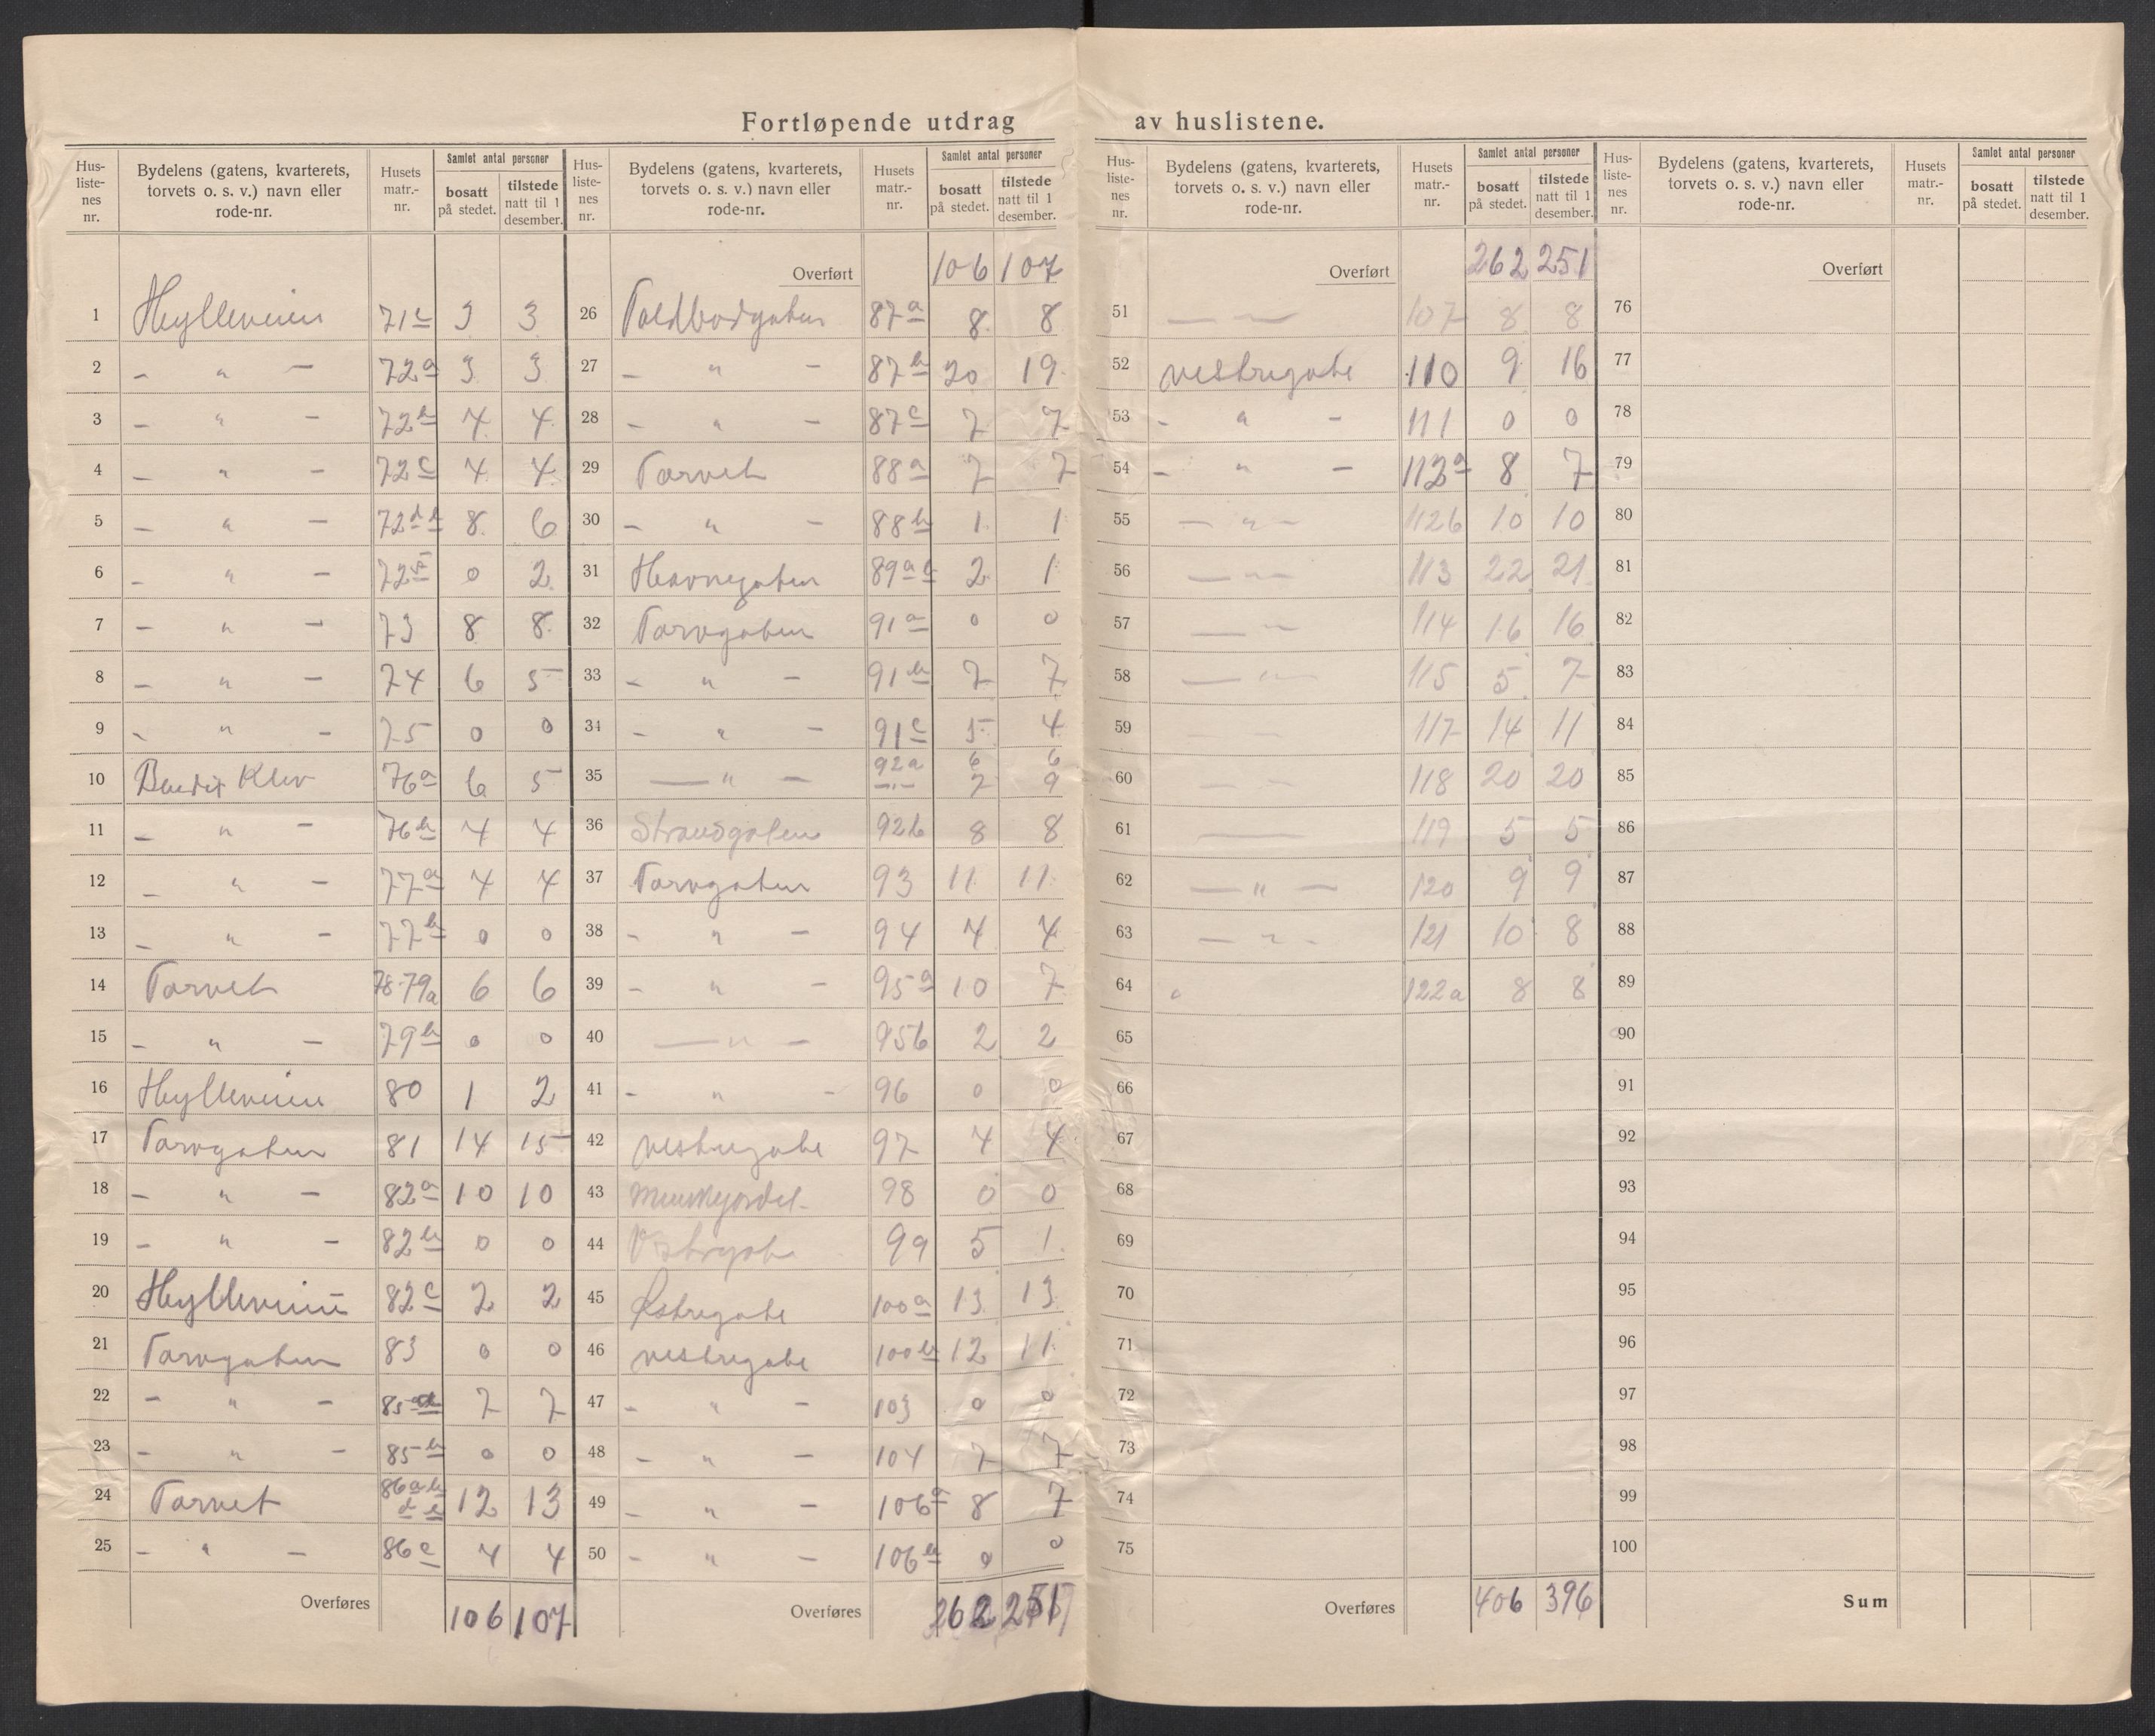 Fortløpende utdrag av huslistene.
Hus-listenes nr. | Bydelens (gatens, kvarterets, torvets o. s. v.) navn eller rode-nr. | Husets matr.-nr. | Samlet antal personer bosatt på stedet. | tilstede natt til 1 desember.
1 Hylleveien 71c 3 3
2 - " - 72a 3 3
3 - " - 72b 4 4
4 - " - 72c 4 4
5 - " - 72 8 6
6 - " - 72 0 2
7 - " - 73 8 8
8 - " - 74 6 5
9 - " - 75 0 0
10 Bendix Klev 76a 6 5
11 - " - 76b 4 4
12 - " - 77a 4 4
13 - " - 77b 0 0
14 Torvet 78-79a 6 6
15 - " - 79b 0 0
16 Hylleveien 80 1 2
17 Torvgaten 81 14 15
18 - " - 82a 10 10
19 - " - 82b 0 0
20 Hylleveien 82c 2 2
21 Torvgaten 83 0 0
22 - " - 85 7 7
23 - " - 85b 0 0
24 Torvet 86a b d e 12 13
25 - " - 86c 4 4
Overføres 106 107
Hus-listenes nr. | Bydelens (gatens, kvarterets, torvets o. s. v.) navn eller rode-nr. | Husets matr.-nr. | Samlet antal personer bosatt på stedet. | tilstede natt til 1 desember.
Overført 106 107
26 Toldbodgaten 87a 8 8
27 - " - 87b 20 19
28 - " - 87c 7 7
29 Torvet 88a 7 7
30 - " - 88b 1 1
31 Havnegaten 89a 2 1
32 Torvgaten 91a 0 0
33 - " - 91b 7 7
34 - " - 91c 5 4
35 - " - 92a 6 6
-"- 7 9
36 Strandgaten 92b 8 8
37 Torvgaten 93 11 11
38 - " - 94 4 4
39 - " - 95a 10 7
40 - " - 95b 2 2
41 - " - 96 0 0
42 Vestregate 97 4 4
43 98 0 0
44 Vestregate 99 5 1
45 Østregate 100a 13 13
46 Vestregate 100b 12 11
47 - " - 103 0 0
48 - " - 104 7 7
49 - " - 106a 8 7
50 - " - 106b 0 0
Overføres 262 251
Hus-listenes nr. | Bydelens (gatens, kvarterets, torvets o. s. v.) navn eller rode-nr. | Husets matr.-nr. | Samlet antal personer bosatt på stedet. | tilstede natt til 1 desember.
Overført 262 251
51 — — 107 8 8
52 Vestregate 110 9 16
53 - " - 111 0 0
54 - " - 112a 8 7
55 - " - 112b 10 10
56 - " - 113 22 21
57 - " 114 16 16
58 - " - 115 5 7
59 - - 117 14 11
60 - - 118 20 20
61 — 119 5 5
62 - " - 120 9 9
63 - " - 121 10 8
64 " 122a 8 8
65
66
67
68
69
70
71
72
73
74
75
Overføres 406 396
Hus-listenes nr. | Bydelens (gatens, kvarterets, torvets o. s. v.) navn eller rode-nr. | Husets matr.-nr. | Samlet antal personer bosatt på stedet. | tilstede natt til 1 desember.
Overført
76
77
78
79
80
81
82
83
84
85
86
87
88
89
90
91
92
93
94
95
96
97
98
99
100
Sum